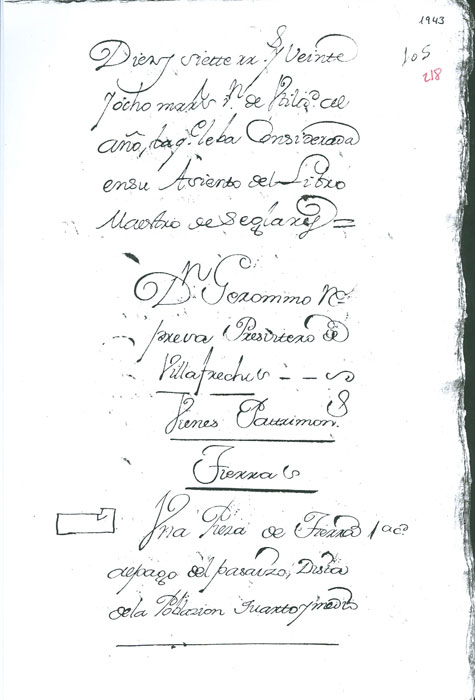 1943
105
218
Diez y siette rrs. y Veinte
y ocho mars. Vn. de Utilid. al
año, la q. leba Considerada
en su Asiento del Libro
Maestro de Seglares =
Dn. Geronimo
Presvitero de
Villafrechos - - -
Vienes Patrimons.
Tierras
Vna Pieza de Tierra 1a ac
al pago del pasarzo, Dista
de la Poblazion quarto y medio